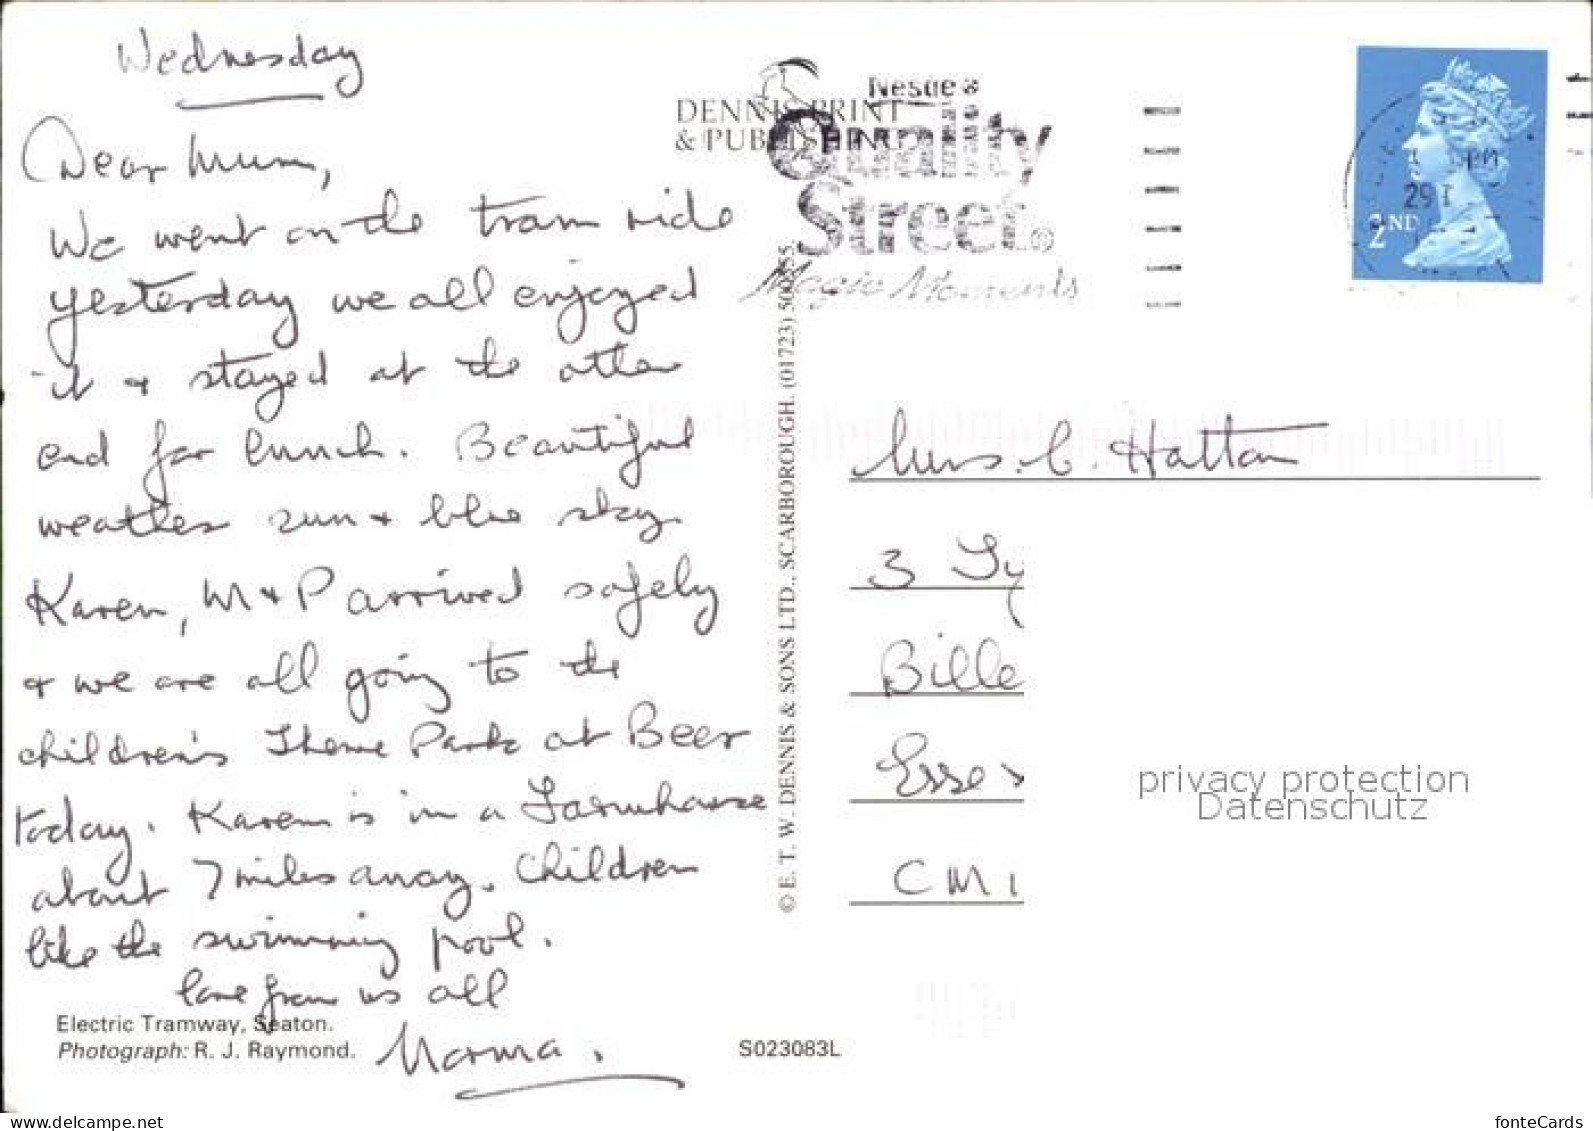 Wednesday
Dear Mum,
We went on the tram ride
yesterday we all enjoyed
it + stayed at the other
end for lunch. Beautiful
weather sun + blue sky.
Karen, M + P arrived safely
+ we are all going to the
children's Theme Park at Beer
today. Karen is in a Farmhouse
about 7 miles away. Children
like the swimming pool.
love from us all
Norma.
Electric Tramway, Seaton.
Photograph: R. J. Raymond.
S023083L
DENNIS PRINT
& PUBLISHING
© E. T. W. DENNIS & SONS LTD., SCARBOROUGH. (01723)
Quality
Street®
Magic Moments
2ND
Mrs. C. Hatton
3
Bille
Essex
CM1
privacy protection
Datenschutz
www.delcampe.net
fonteCards